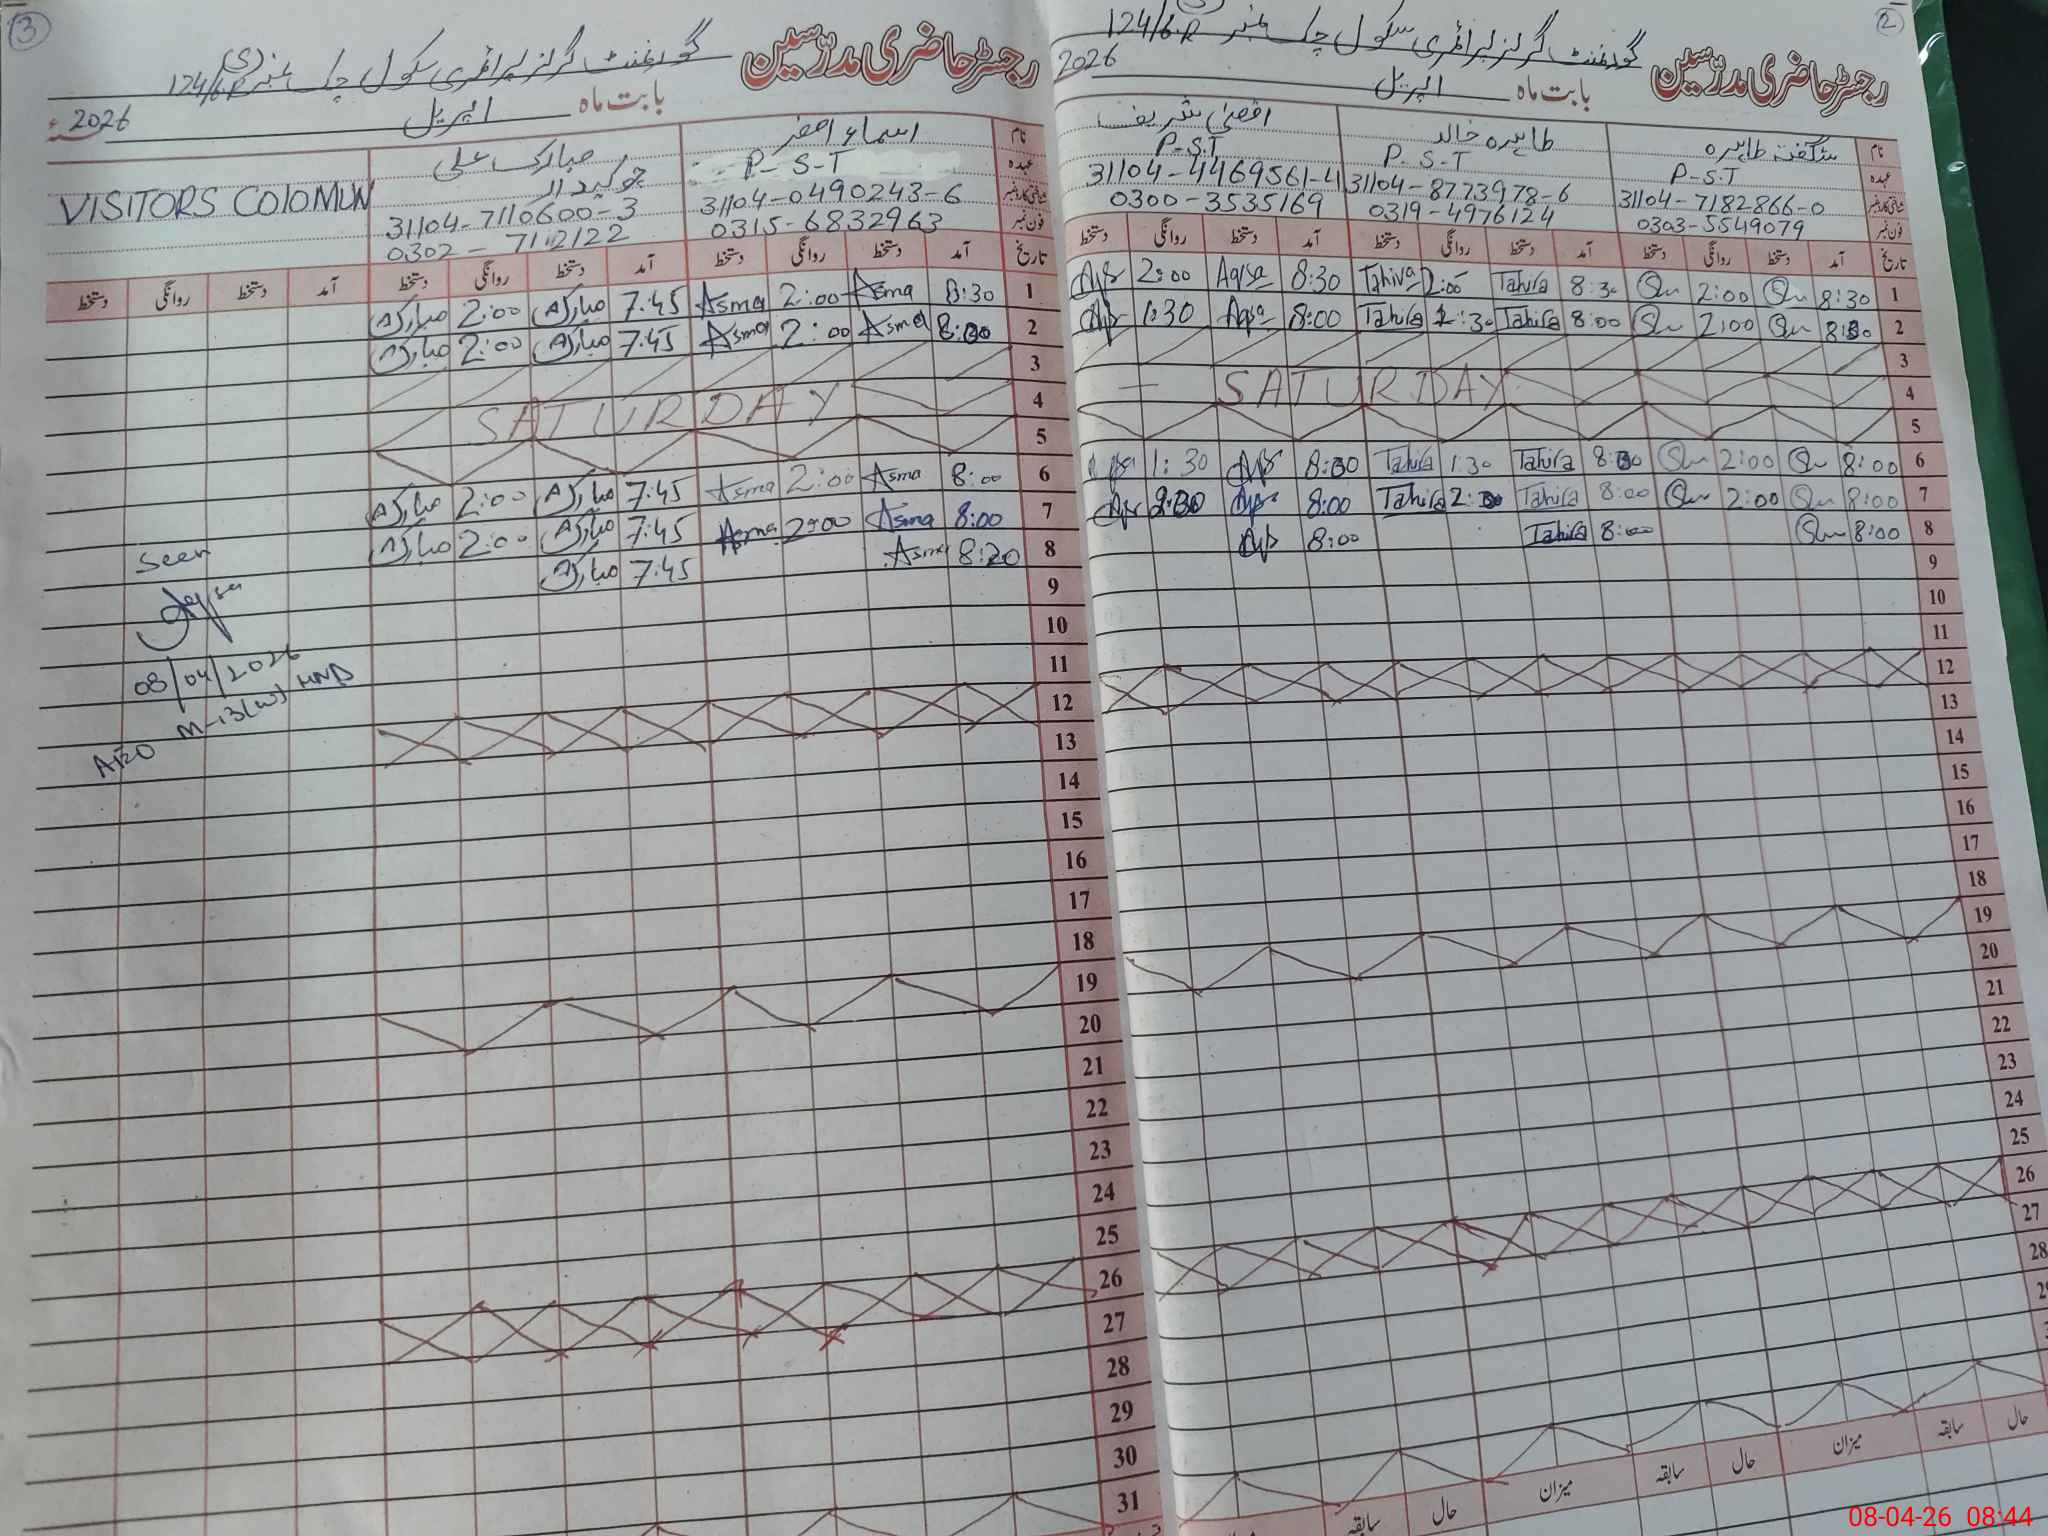 3
رجسٹر حاضری مدرسین گورنمنٹ گرلز پرائمری سکول چک نمبر 124/6.R (S)
بابت ماہ اپریل 2026ء
نام اسماء اصغر مبارک علی
عہدہ P-S-T چوکیدار
شناختی کارڈ نمبر 31104-0490243-6 31104-7110600-3 VISITORS COlOMUN
فون نمبر 0315-6832963 0302-7112122
تاریخ آمد دستخط روانگی دستخط آمد دستخط روانگی دستخط آمد دستخط روانگی دستخط
1 8:30 Asma 2:00 Asma 7:45 مبارک 2:00 مبارک
2 8:00 Asma 2:00 Asma 7:45 مبارک 2:00 مبارک
3
4 SATURDAY
5
6 8:00 Asma 2:00 Asma 7:45 مبارک 2:00 مبارک
7 8:00 Asma 2:00 Asma 7:45 مبارک 2:00 مبارک
8 8:20 Asma 7:45 مبارک
Seen
08/04/2026
AEO M-13(W) HND
9
10
11
12
13
14
15
16
17
18
19
20
21
22
23
24
25
26
27
28
29
30
31
2
رجسٹر حاضری مدرسین گورنمنٹ گرلز پرائمری سکول چک نمبر 124/6.R (S)
بابت ماہ اپریل 2026
نام شگفتہ طاہرہ طاہرہ خالد اقصیٰ شریف
عہدہ P-S-T P-S-T P-S.T
شناختی کارڈ نمبر 31104-7182866-0 31104-8773978-6 31104-4469561-4
فون نمبر 0303-5549079 0319-4976124 0300-3535169
تاریخ آمد دستخط روانگی دستخط آمد دستخط روانگی دستخط آمد دستخط روانگی دستخط
1 8:30 2:00 8:30 Tahira 2:00 Tahira 8:30 Aqsa 2:00
2 8:30 2:00 8:00 Tahira 1:30 Tahira 8:00 Aqsa 1:30
3
4 SATURDAY
5
6 8:00 2:00 8:00 Tahira 1:30 Tahira 8:00 1:30
7 8:00 2:00 8:00 Tahira 2:00 Tahira 8:00
8 8:00 8:00 Tahira 8:00
9
10
11
12
13
14
15
16
17
18
19
20
21
22
23
24
25
26
27
28
حال سابقہ میزان حال سابقہ میزان حال سابقہ
08-04-26 08:44